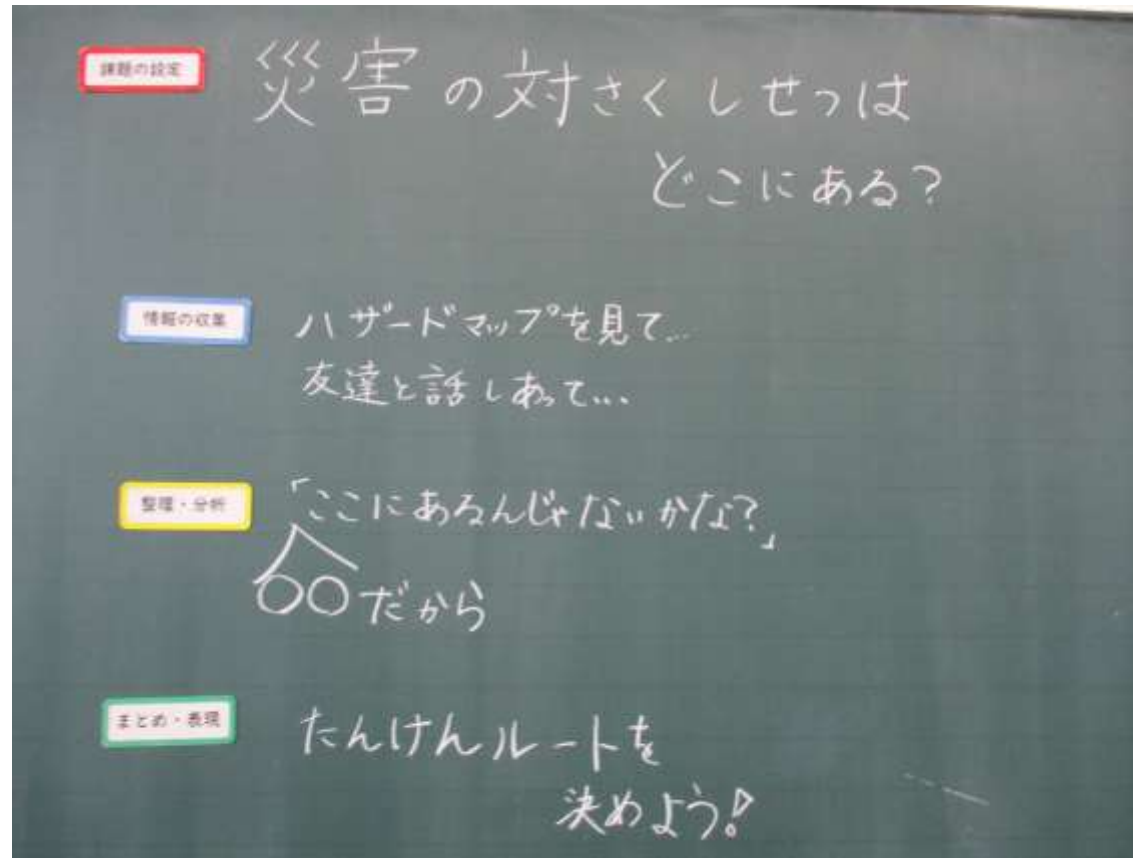 課題の設定
災害の対さくしせつは
どこにある?
情報の収集
ハザードマップを見て…
友達と話しあって…
整理・分析
「ここにあるんじゃないかな?」
○○だから
まとめ・表現
たんけんルートを
決めよう!